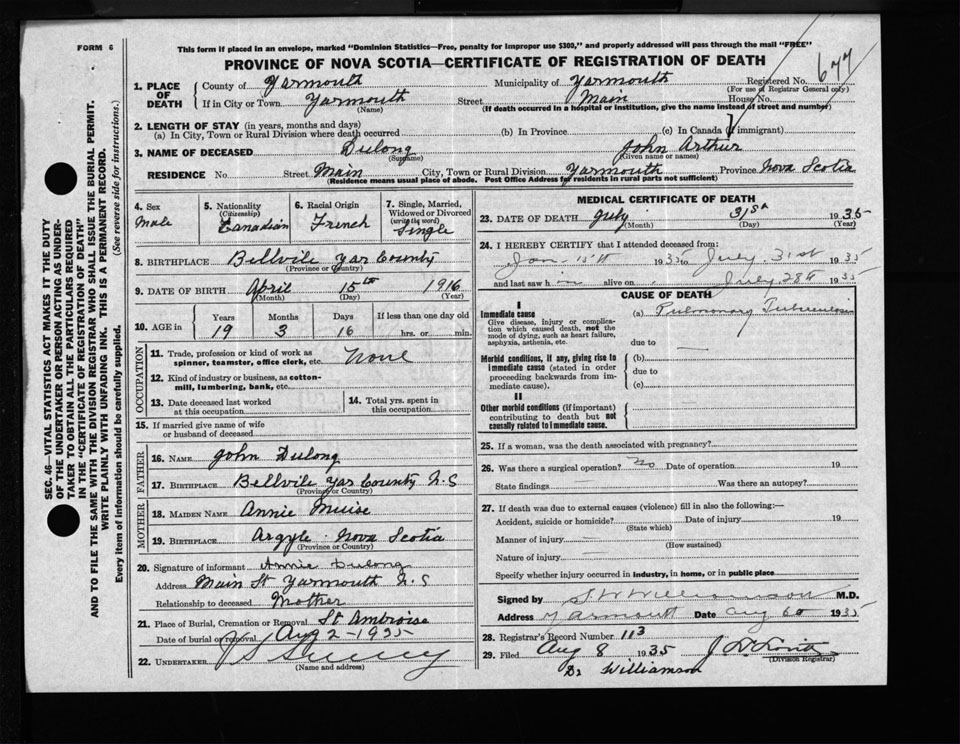 FORM 6
This form if placed in an envelope, marked "Dominion Statistics—Free, penalty for improper use $300," and properly addressed will pass through the mail "FREE"
PROVINCE OF NOVA SCOTIA—CERTIFICATE OF REGISTRATION OF DEATH
677
1. PLACE OF DEATH
County of Yarmouth Municipality of Yarmouth Registered No.
(For use of Registrar General only)
If in City or Town Yarmouth Street Main House No.
(Name) (If death occurred in a hospital or institution, give the name instead of street and number)
2. LENGTH OF STAY (in years, months and days)
(a) In City, Town or Rural Division where death occurred (b) In Province (c) In Canada (if immigrant)
3. NAME OF DECEASED Dulong John Arthur
(Surname) (Given name or names)
RESIDENCE No. Street Main City, Town or Rural Division Yarmouth Province Nova Scotia
(Residence means usual place of abode. Post Office Address for residents in rural parts not sufficient)
4. Sex Male
5. Nationality (Citizenship) Canadian
6. Racial Origin French
7. Single, Married, Widowed or Divorced (write the word) Single
8. BIRTHPLACE Bellvile Yar County
(Province or Country)
9. DATE OF BIRTH April 15th 1916
(Month) (Day) (Year)
10. AGE in Years Months Days If less than one day old
19 3 16 hrs. or min.
OCCUPATION
11. Trade, profession or kind of work as spinner, teamster, office clerk, etc. None
12. Kind of industry or business, as cotton-mill, lumbering, bank, etc.
13. Date deceased last worked at this occupation
14. Total yrs. spent in this occupation
15. If married give name of wife or husband of deceased
FATHER
16. NAME John Dulong
17. BIRTHPLACE Bellvile Yar County N.S
(Province or Country)
MOTHER
18. MAIDEN NAME Annie Muise
19. BIRTHPLACE Argyle Nova Scotia
(Province or Country)
20. Signature of informant Annie Dulong
Address Main St Yarmouth N.S
Relationship to deceased Mother
21. Place of Burial, Cremation or Removal St Ambroise
Date of burial or removal Aug 2 - 1935
22. UNDERTAKER
(Name and address)
MEDICAL CERTIFICATE OF DEATH
23. DATE OF DEATH July 31st 1935
(Month) (Day) (Year)
24. I HEREBY CERTIFY that I attended deceased from:
Jan - 15th 1935 to July 31st 1935
and last saw h im alive on July 28th 1935
CAUSE OF DEATH
I
Immediate cause
Give disease, injury or complication which caused death, not the mode of dying, such as heart failure, asphyxia, asthenia, etc.
(a) Pulmonary Tuberculosis
due to —
Morbid conditions, if any, giving rise to immediate cause (stated in order proceeding backwards from immediate cause).
(b)
due to
(c)
II
Other morbid conditions (if important) contributing to death but not causally related to immediate cause.
25. If a woman, was the death associated with pregnancy?
26. Was there a surgical operation? No Date of operation 19
State findings — Was there an autopsy?
27. If death was due to external causes (violence) fill in also the following:—
Accident, suicide or homicide? Date of injury 19
(State which)
Manner of injury —
(How sustained)
Nature of injury —
Specify whether injury occurred in industry, in home, or in public place
Signed by Williamson M.D.
Address Yarmouth Date Aug 6th 1935
28. Registrar's Record Number 113
29. Filed Aug 8 1935
(Division Registrar)
Dr Williamson
SEC. 46—VITAL STATISTICS ACT MAKES IT THE DUTY
OF THE UNDERTAKER OR PERSON ACTING AS UNDER-
TAKER TO OBTAIN ALL THE PARTICULARS REQUIRED
IN THE "CERTIFICATE OF REGISTRATION OF DEATH"
AND TO FILE THE SAME WITH THE DIVISION REGISTRAR WHO SHALL ISSUE THE BURIAL PERMIT.
WRITE PLAINLY WITH UNFADING INK. THIS IS A PERMANENT RECORD.
Every item of information should be carefully supplied. (See reverse side for instructions.)